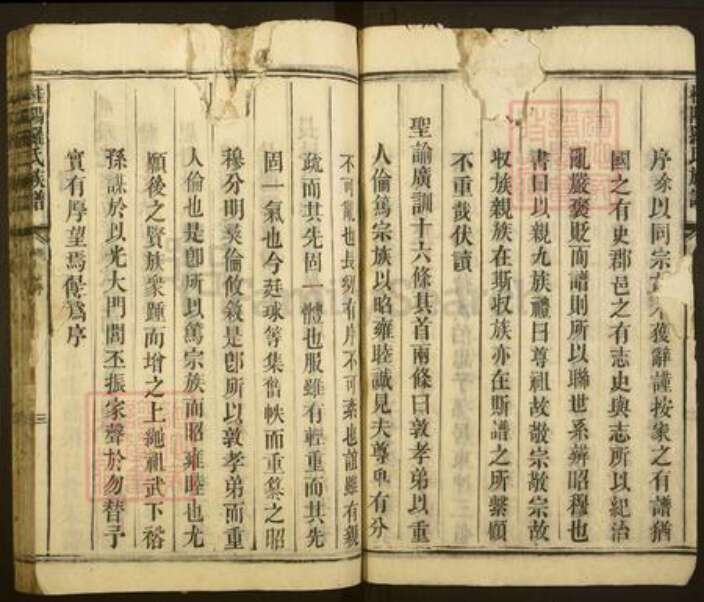 序余以同宗不獲辭謹按家之有譜猶
國之有史郡邑之有志史與志所以紀治
亂嚴褒貶而譜則所以聯世系辨昭穆也
書曰以親九族禮曰尊祖故敬宗敬宗故
收族親族在斯收族亦在斯譜之所繫顧
不重哉伏讀
聖諭廣訓十六條其首兩條曰敦孝弟以重
人倫篤宗族以昭雍睦誠見夫尊卑有分
不可亂也長幼有序不可紊也誼雖有親
疏而其先固一體也服雖有輕重而其先
固一氣也今廷球等集舊帙而重纂之昭
穆分明彝倫攸敘是即所以敦孝弟而重
人倫也是即所以篤宗族而昭雍睦也尤
願後之賢族衆踵而增之上繩祖武下裕
孫謀於以光大門閭丕振家聲於勿替予
實有厚望焉是爲序
氏族譜
三